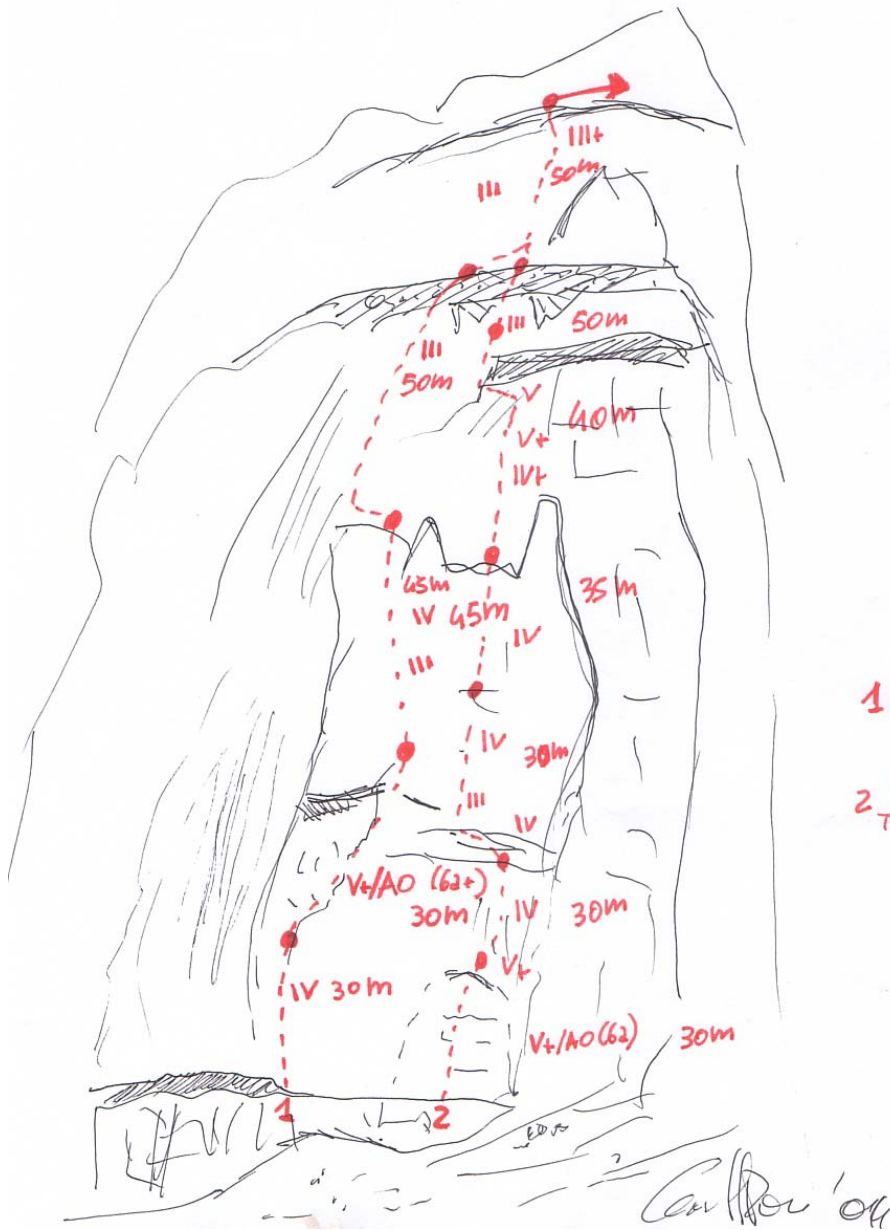 III+
50m
III
III
50m
III
50m
V
40m
V+
IV+
45m
35m
IV
45m
IV
III
IV
30m
III
IV
V+/AO (6a+)
30m
IV
30m
V+
IV 30m
V+/AO (6a)
30m
1
2
1
2